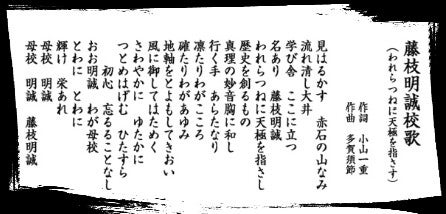 藤枝明誠校歌
（われらつねに天極を指さす）
作詞　小山一重
作曲　多賀須節
見はるかす　赤石の山なみ
流れ清し大井
学び舎　ここに立つ
名あり　藤枝明誠
われらつねに天極を指さし
歴史を創るもの
真理の妙音胸に和し
行く手　あらたなり
凛たりわがこころ
確たりわがあゆみ
地軸をとよもしてきおい
風に御してはためく
さわやかに　ゆたかに
つとめはげむ　ひたすら
初心　忘るることなし
おお明誠　わが母校
とわに　とわに
輝け　栄あれ
母校　明誠
母校　明誠　藤枝明誠